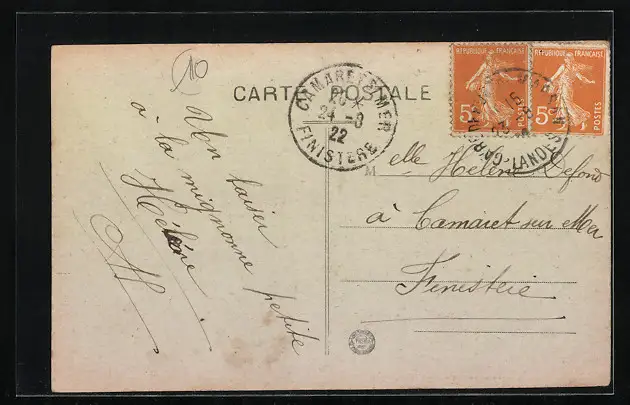 CARTE POSTALE
CAMARET-S-MER
20 *
24 - 8
22
FINISTERE
REPUBLIQUE FRANÇAISE
5c
POSTES
REPUBLIQUE FRANÇAISE
5c
POSTES
LANDES
Un baiser
à la mignonne petite
Hélène
AH
M elle Hélène Defond
à Camaret sur Mer
Finistère